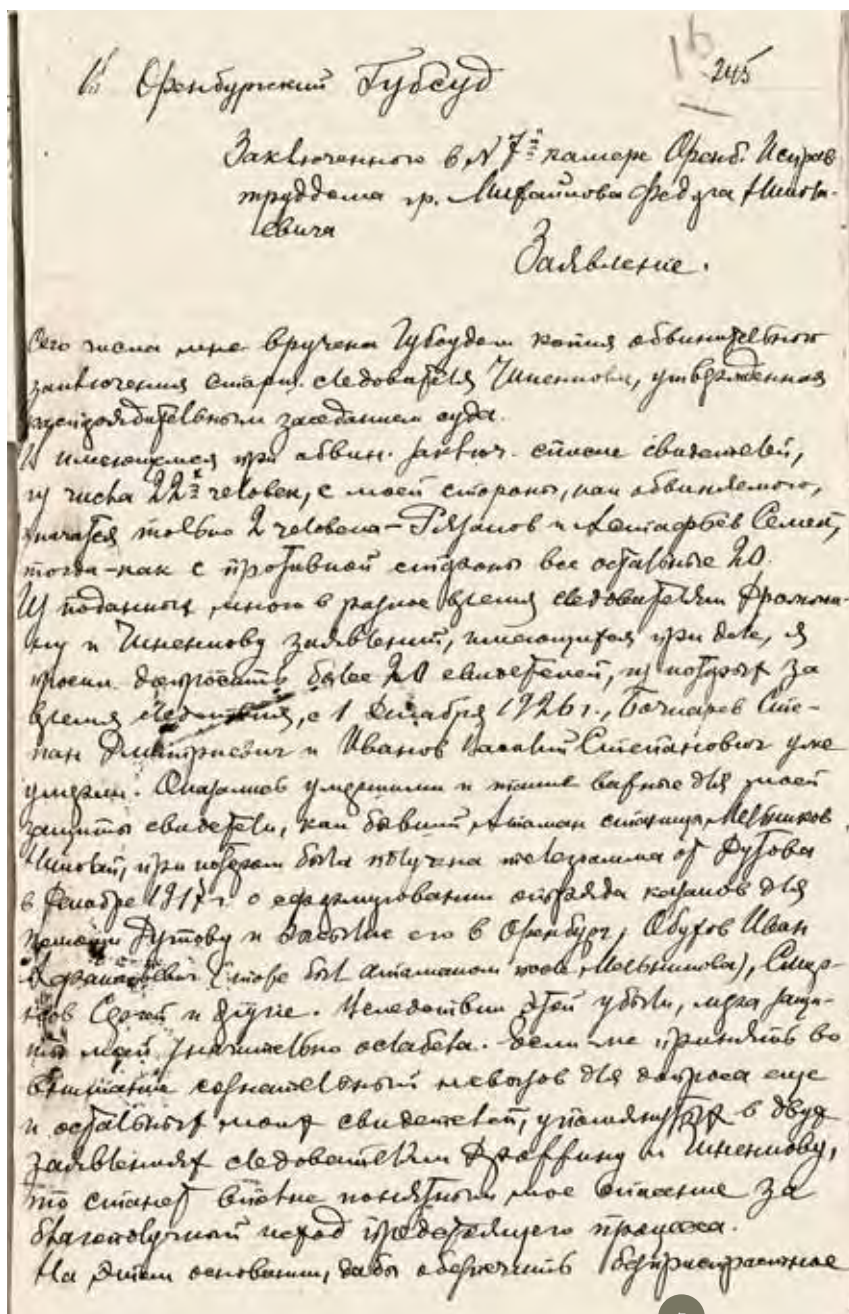 16 245
В Оренбургский Губсуд
Заключенного в № 7й камере Оренб. Исправ
труддома гр. Михайлова Федула Никола-
евича
Заявление.
Сего числа мне вручена Губсудом копия обвинительного
заключения старш. следователя, утвержденная
распорядительным заседанием суда.
В имеющемся при обвин. заключ. списке свидетелей,
из числа 22х человек, с моей стороны, как обвиняемого,
значатся только 2 человека – Рязанов и Астафьев Семен,
тогда-как с противной стороны все остальные 20.
Из поданных мною в разное время следователям
и заявлений, имеющихся при деле, я
просил допросить более 20 свидетелей, из которых за
время следствия, с 1 декабря 1926 г., Бочкарев Сте-
пан Дмитриевич и Иванов Василий Степанович уже
умерли. Оказались умершими и такие важные для моей
защиты свидетели, как бывший Атаман станицы Мельников
Николай, при котором была получена телеграмма от Дутова
в Декабре 1917 г. о сформировании отряда казаков для
помощи Дутову и высылке его в Оренбург, Обухов Иван
(тоже был атаманом после Мельникова), Смир-
нов Сергей и другие. Вследствии этой убыли, мера защи-
ты моей значительно ослабела. Если-же принять во
внимание сознательный невызов для допроса еще
и остальных моих свидетелей, упомянутых в двух
заявлениях следователям и,
то станет вполне понятным мое опасение за
благополучный исход предстоящего процесса.
На этом основании, дабы обеспечить беспристрастное